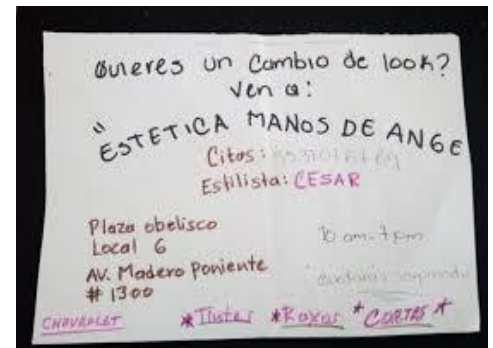 Quieres un Cambio de look?
Ven a:
"ESTETICA MANOS DE ANGE
Citas:
Estilista: CESAR
Plaza obelisco
Local 6
10 am - 7 pm
AV. Madero Poniente
# 1300
CHAVRALET
*Tintes *Rayos *CORTES *